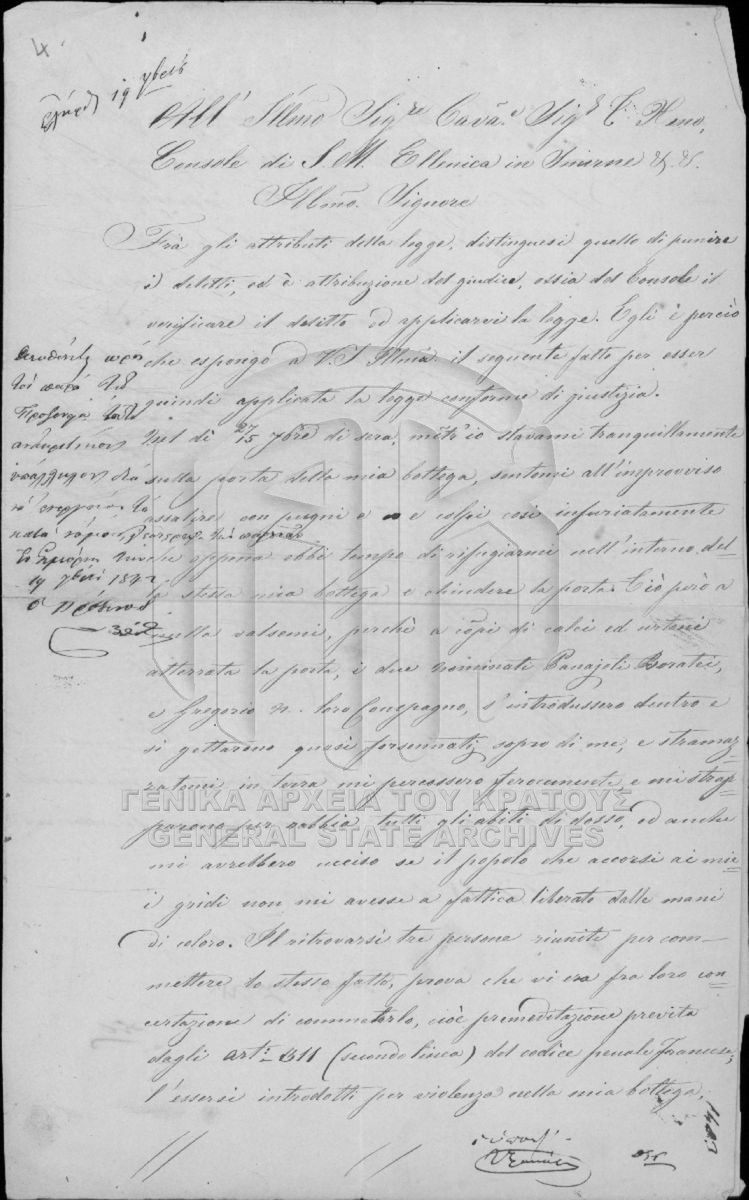 4
19
All' Illmo Sigre Cavae Sigr C. Xeno,
Console di S. M. Ellenica in Smirne &. &.
Illmo. Signore
Frà gli attributi della legge, distinguesi quello di punire
i delitti, ed è attribuzione del giudice, ossia del Console il
verificare il delitto ed applicarvi la legge. Egli è perciò
che espongo a V. S. Illma. il seguente fatto per esser
quindi applicata la legge conforme di giustizia.
Nel dì 15/27 7bre di sera, mentr'io stavami tranquillamente
sulla porta della mia bottega, sentomi all'improvviso
assalire con pugni e e colpi così infuriatamente
che appena ebbi tempo di rifugiarmi nell'interno del-
la stessa mia bottega e chindere la porta. Ciò però a
nulla valsemi, perchè a colpi di calci ed urtoni
atterrata la porta, i due nominati Panajoti
e Gregorio N. loro Compagno, s'introdussero dentro e
si gettarono quasi forsennati sopra di me, e stramaz-
zatomi in terra mi percossero ferocemente, e mi strap-
parono per rabbia tutti gli abiti di dosso, ed anche
mi avrebbero ucciso se il popolo che accorsi ai mie-
i gridi non mi avesse a fattica liberato dalle mani
di coloro. Il ritrovarsi tre persone riunite per com-
mettere lo stesso fatto, prova che vi era fra loro con-
certazione di commetterlo, cioè premeditazione previta
dagli arti 311 (secondo linea) del codice penale Francese;
l'essersi introdotti per violenza nella mia bottega,
Διευθύνεται πρὸς
τὸν παρὰ τῷ
Προξενείῳ τούτῳ
ἀνακριτικὸν
ὑπάλληλον διὰ
νὰ ἐνεργήσῃ τὰ
κατὰ νόμον
19
ὁ Πρόξενος
1403
ΓΕΝΙΚΑ ΑΡΧΕΙΑ ΤΟΥ ΚΡΑΤΟΥΣ
GENERAL STATE ARCHIVES